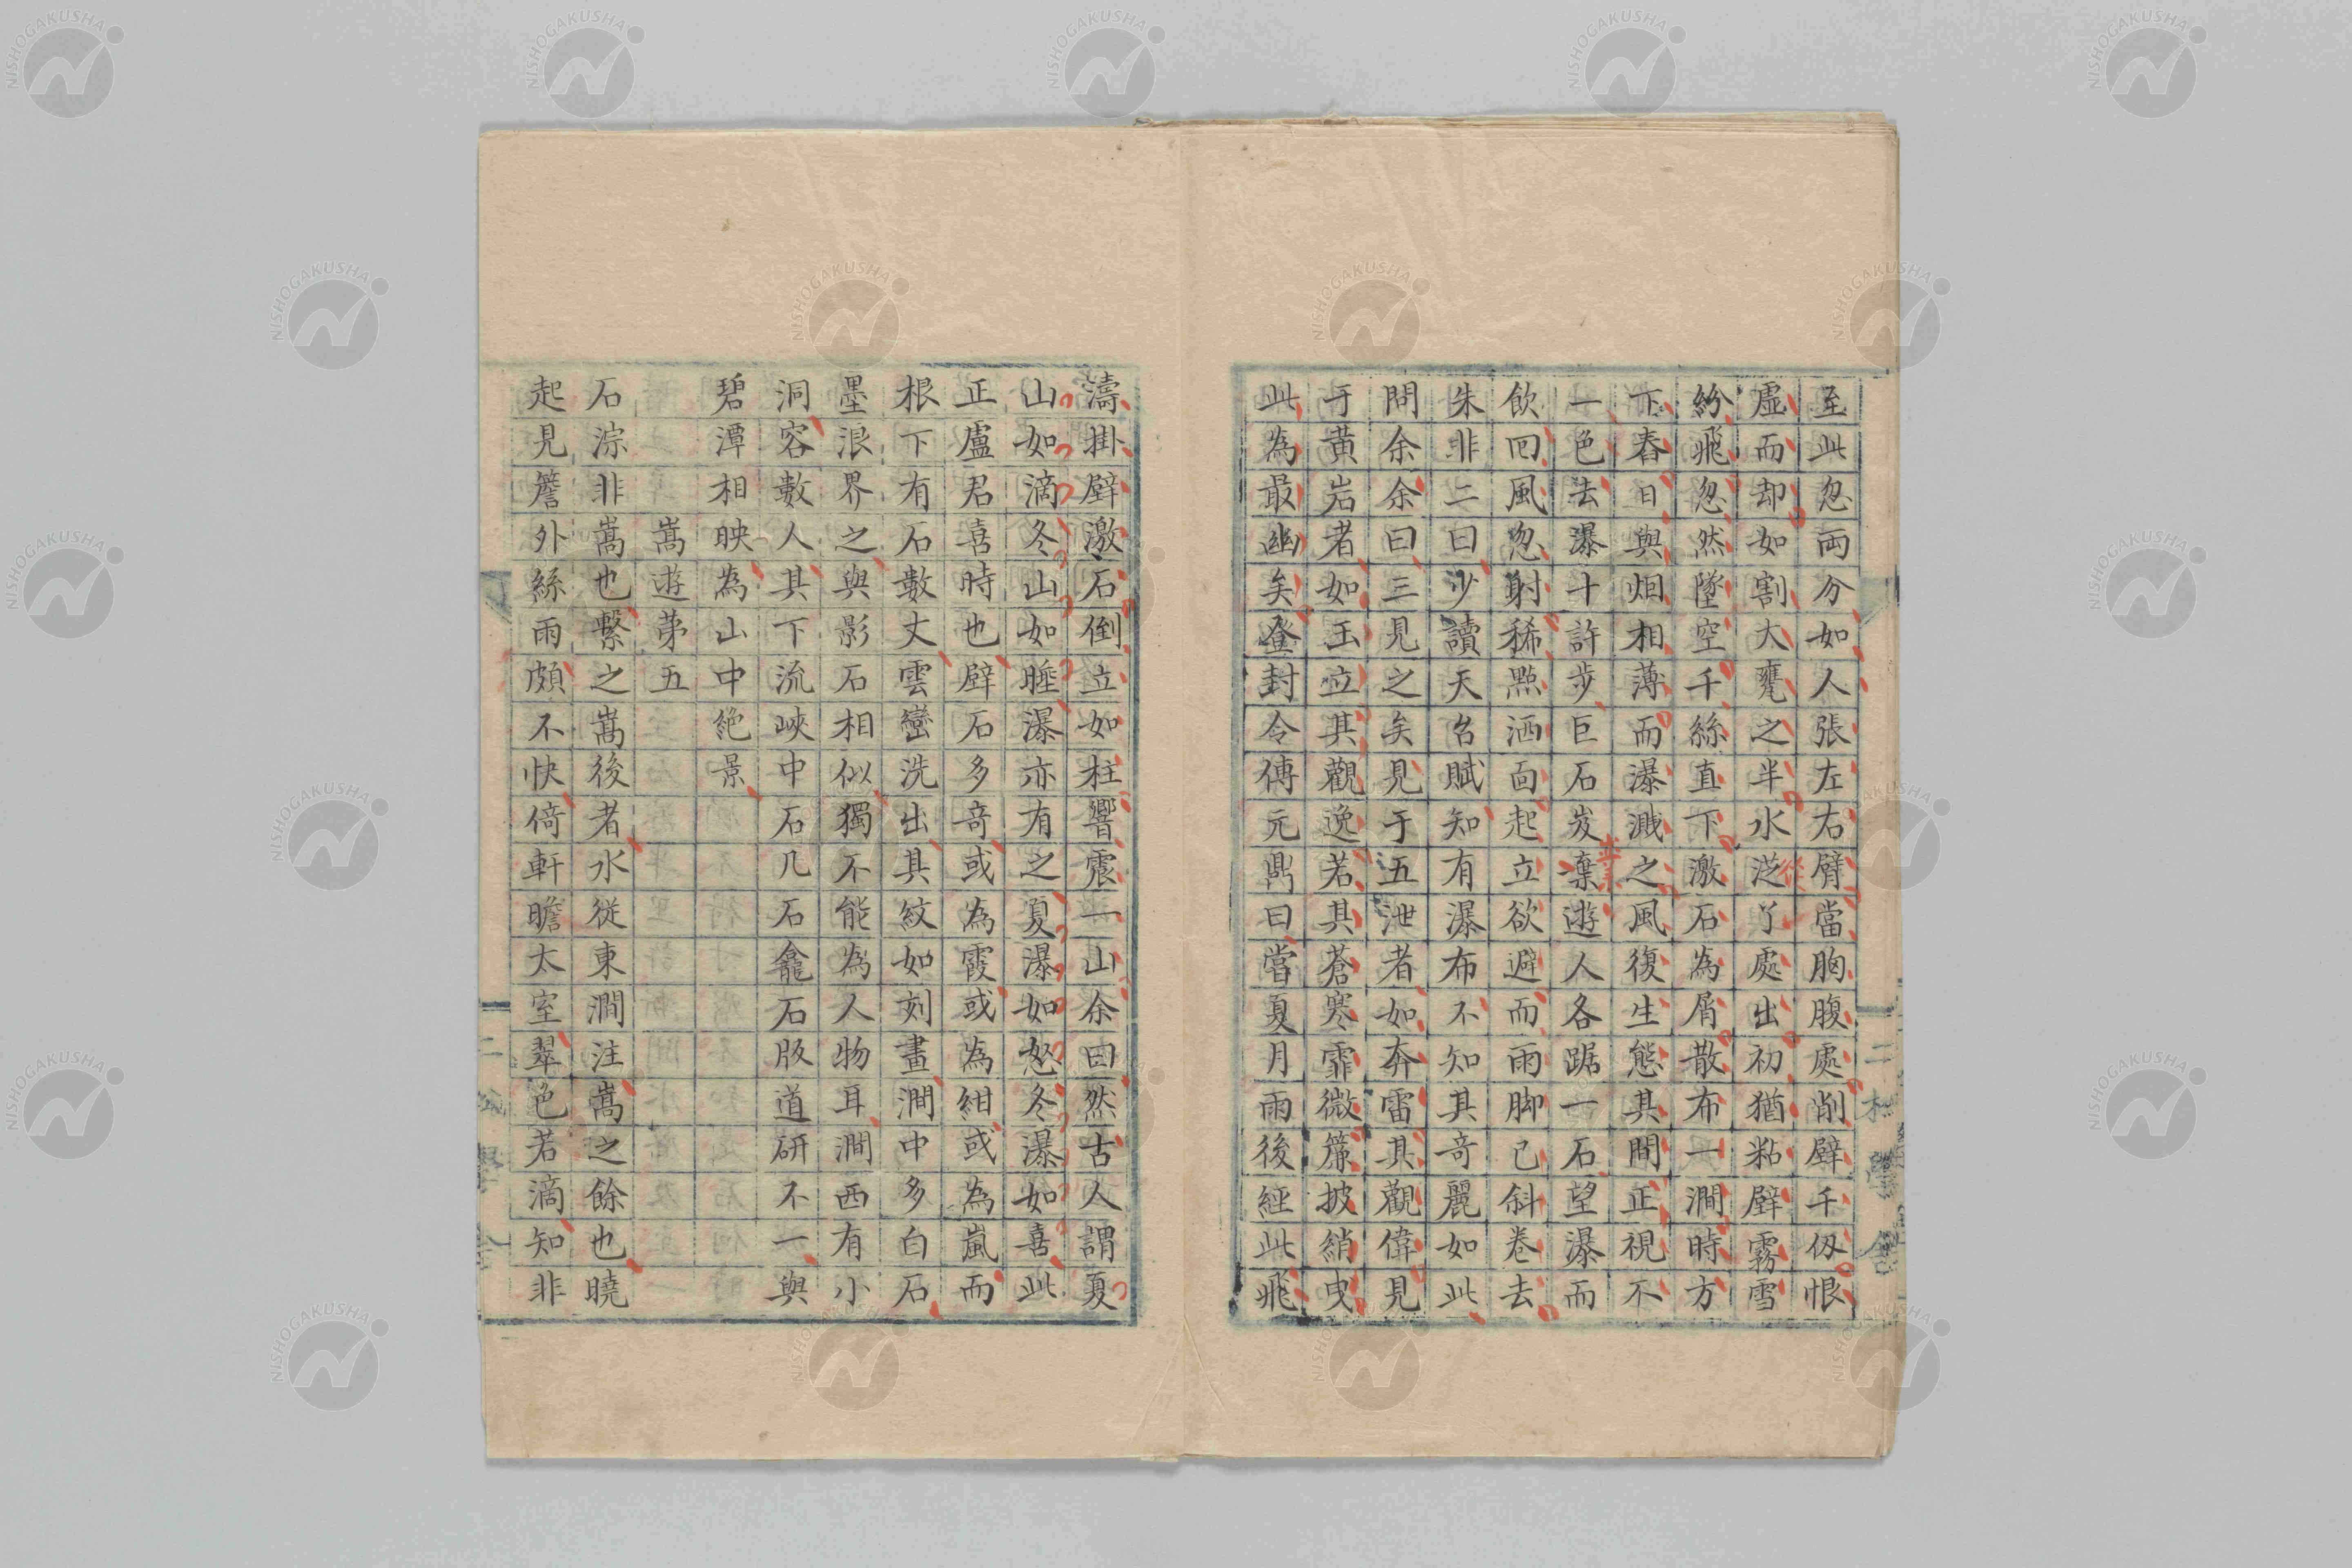 至此忽両分如人張左右臂當胸腹處削壁千仭恨
虛而却如割大甕之半水從了處出初猶粘壁霧雪
紛飛忽然墜空千絲直下激石為屑散布一澗時方
下舂日與烟相薄而瀑濺之風復生態其間正視不
一色去瀑十許步巨石岌業遊人各踞一石望瀑而
飲回風忽射稀㸃洒面起立欲避而雨脚已斜卷去
朱非二曰少讀天台賦知有瀑布不知其竒麗如此
問余余曰三見之矣見于五泄者如奔雷其觀偉見
于黄岩者如玉立其觀逸若其蒼寒霏微簾披綃曳
此為最幽矣登封令傅元鼎曰當夏月雨後經此飛
濤掛壁激石倒立如柱響震一山余曰然古人謂夏
山如滴冬山如睡瀑亦有之夏瀑如怒冬瀑如喜此
正盧君喜時也壁石多竒或為霞或為紺或為嵐而
根下有石數丈雲巒洗出其紋如刻畫澗中多白石
墨浪界之與影石相似獨不能為人物耳澗西有小
洞容數人其下流峽中石几石龕石版道研不一與
碧潭相映為山中絶景
嵩遊苐五
石淙非嵩也繫之嵩後者水從東澗注嵩之餘也曉
起見簷外絲雨頗不快倚軒瞻太室翠色若滴知非
二松學舍